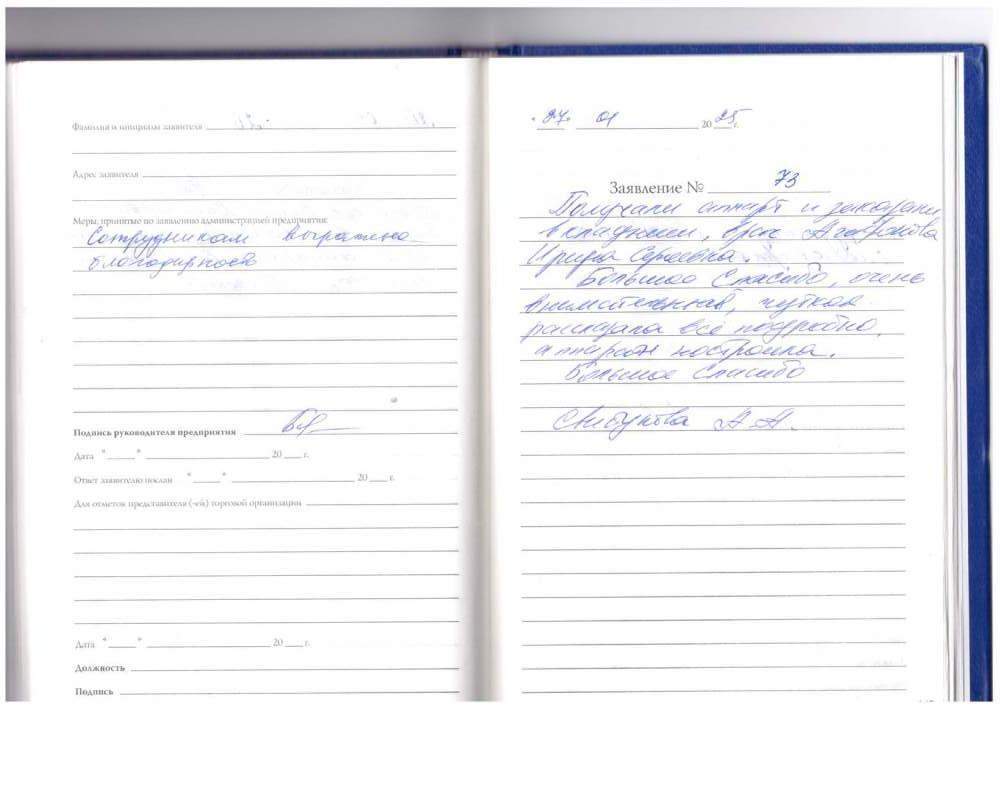 Фамилия и инициалы заявителя
Адрес заявителя
Меры, принятые по заявлению администрацией предприятия:
Сотрудникам выражена
благодарность
Подпись руководителя предприятия
Дата " " 20 г.
Ответ заявителю послан " " 20 г.
Для отметок представителя (-ей) торговой организации
Дата " " 20 г.
Должность
Подпись
"27" 01 2025 г.
Заявление № 73
Получали аппарт и заказали
вкладыши, врач
Ирина Сергеевна.
Большое Спасибо, очень
внимательная, чуткая
рассказала всё подробно,
аппарат настроила.
Большое Спасибо
А.А.